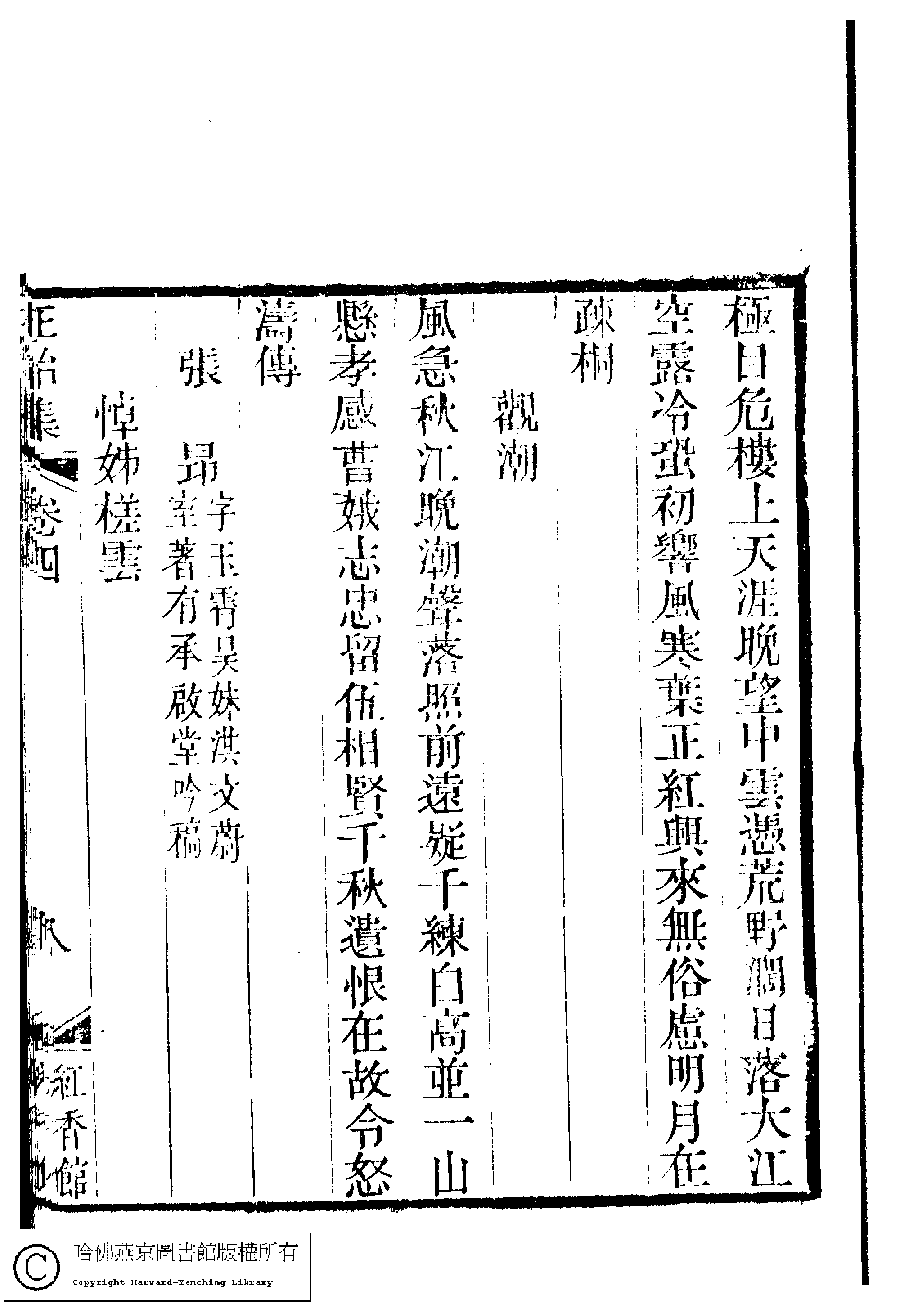 極目危樓上天涯晚望中雲憑荒野濶日落大江
空露冷蛩初響風寒葉正紅興來無俗慮明月在
疎桐
觀潮
風急秋江晚潮聲落照前遠疑千練白高並一山
懸孝感曹娥志忠留伍相賢千秋遺恨在故令怒
濤傳
張昂
字玉霄吳姝洪文蔚
室著有承啟堂吟稿
悼姊槎雲
正始集 卷四 八 紅香館
哈佛燕京圖書館版權所有
Copyright Harvard-Yenching Library